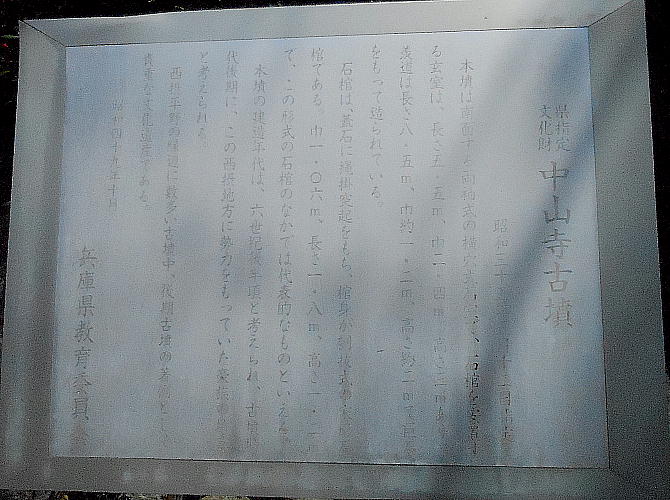 県指定
文化財
中山寺古墳
昭和三十
本墳は南面する両袖式の横穴式石室で、石棺を
る玄室は、長さ五・五m、巾二・四m、高さ三m
羨道は長さ八・五m、巾約一・二m、高さ約二mで巨
をもって造られている。
石棺は、蓋石に縄掛突起をもち、棺身が刳抜式の
棺である。巾一・〇六m、長さ一・八m、高さ一・
で、この形式の石棺のなかでは代表的なものといえ
本墳の建造年代は、六世紀後半頃と考えられ、古墳
代後期に、この西摂地方に勢力をもっていた豪族の
と考えられる。
西摂平野の縁辺に数多い古墳中、後期古墳の
貴重な文化遺産である。
昭和四十九年十月
兵庫県教育委員会